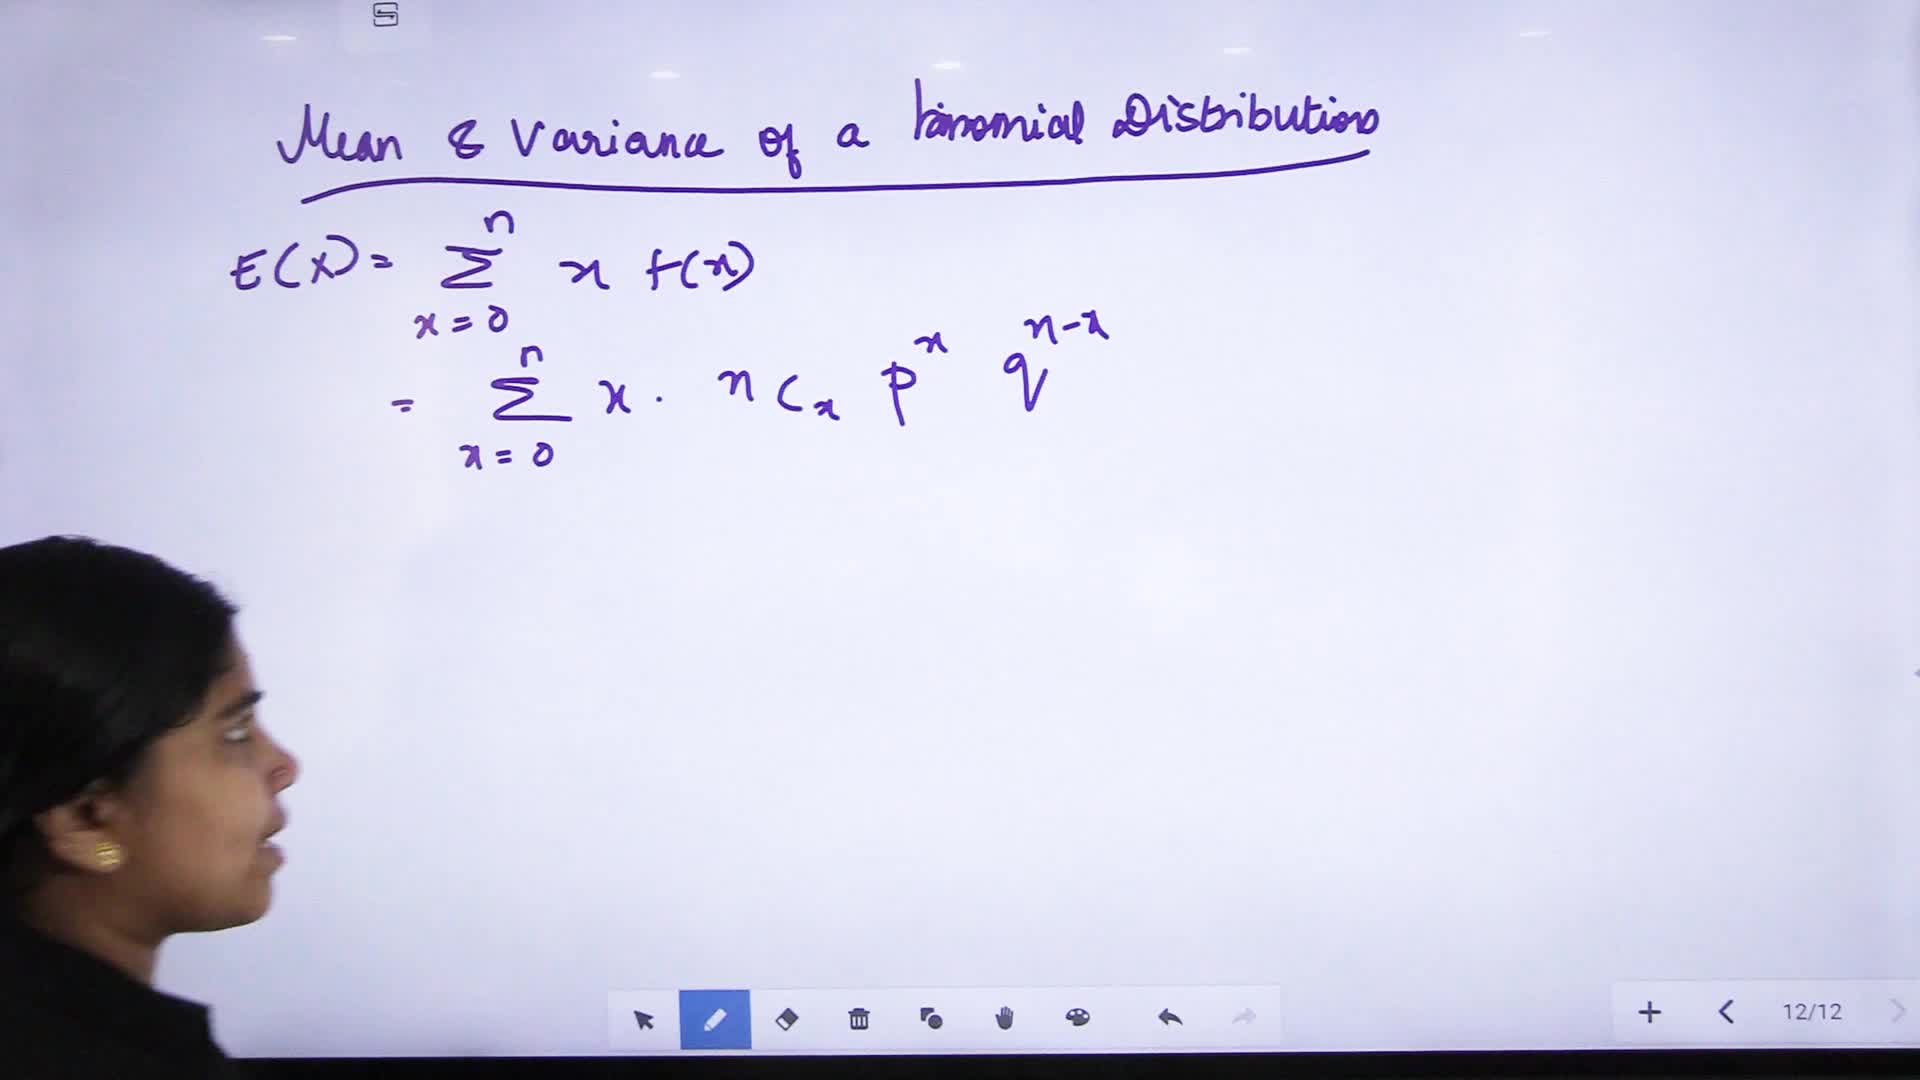 Mean & Variance of a binomial Distribution
E(X) = n∑x=0 x f(x)
= n∑x=0 x . nCx p^x q^n-x
12/12